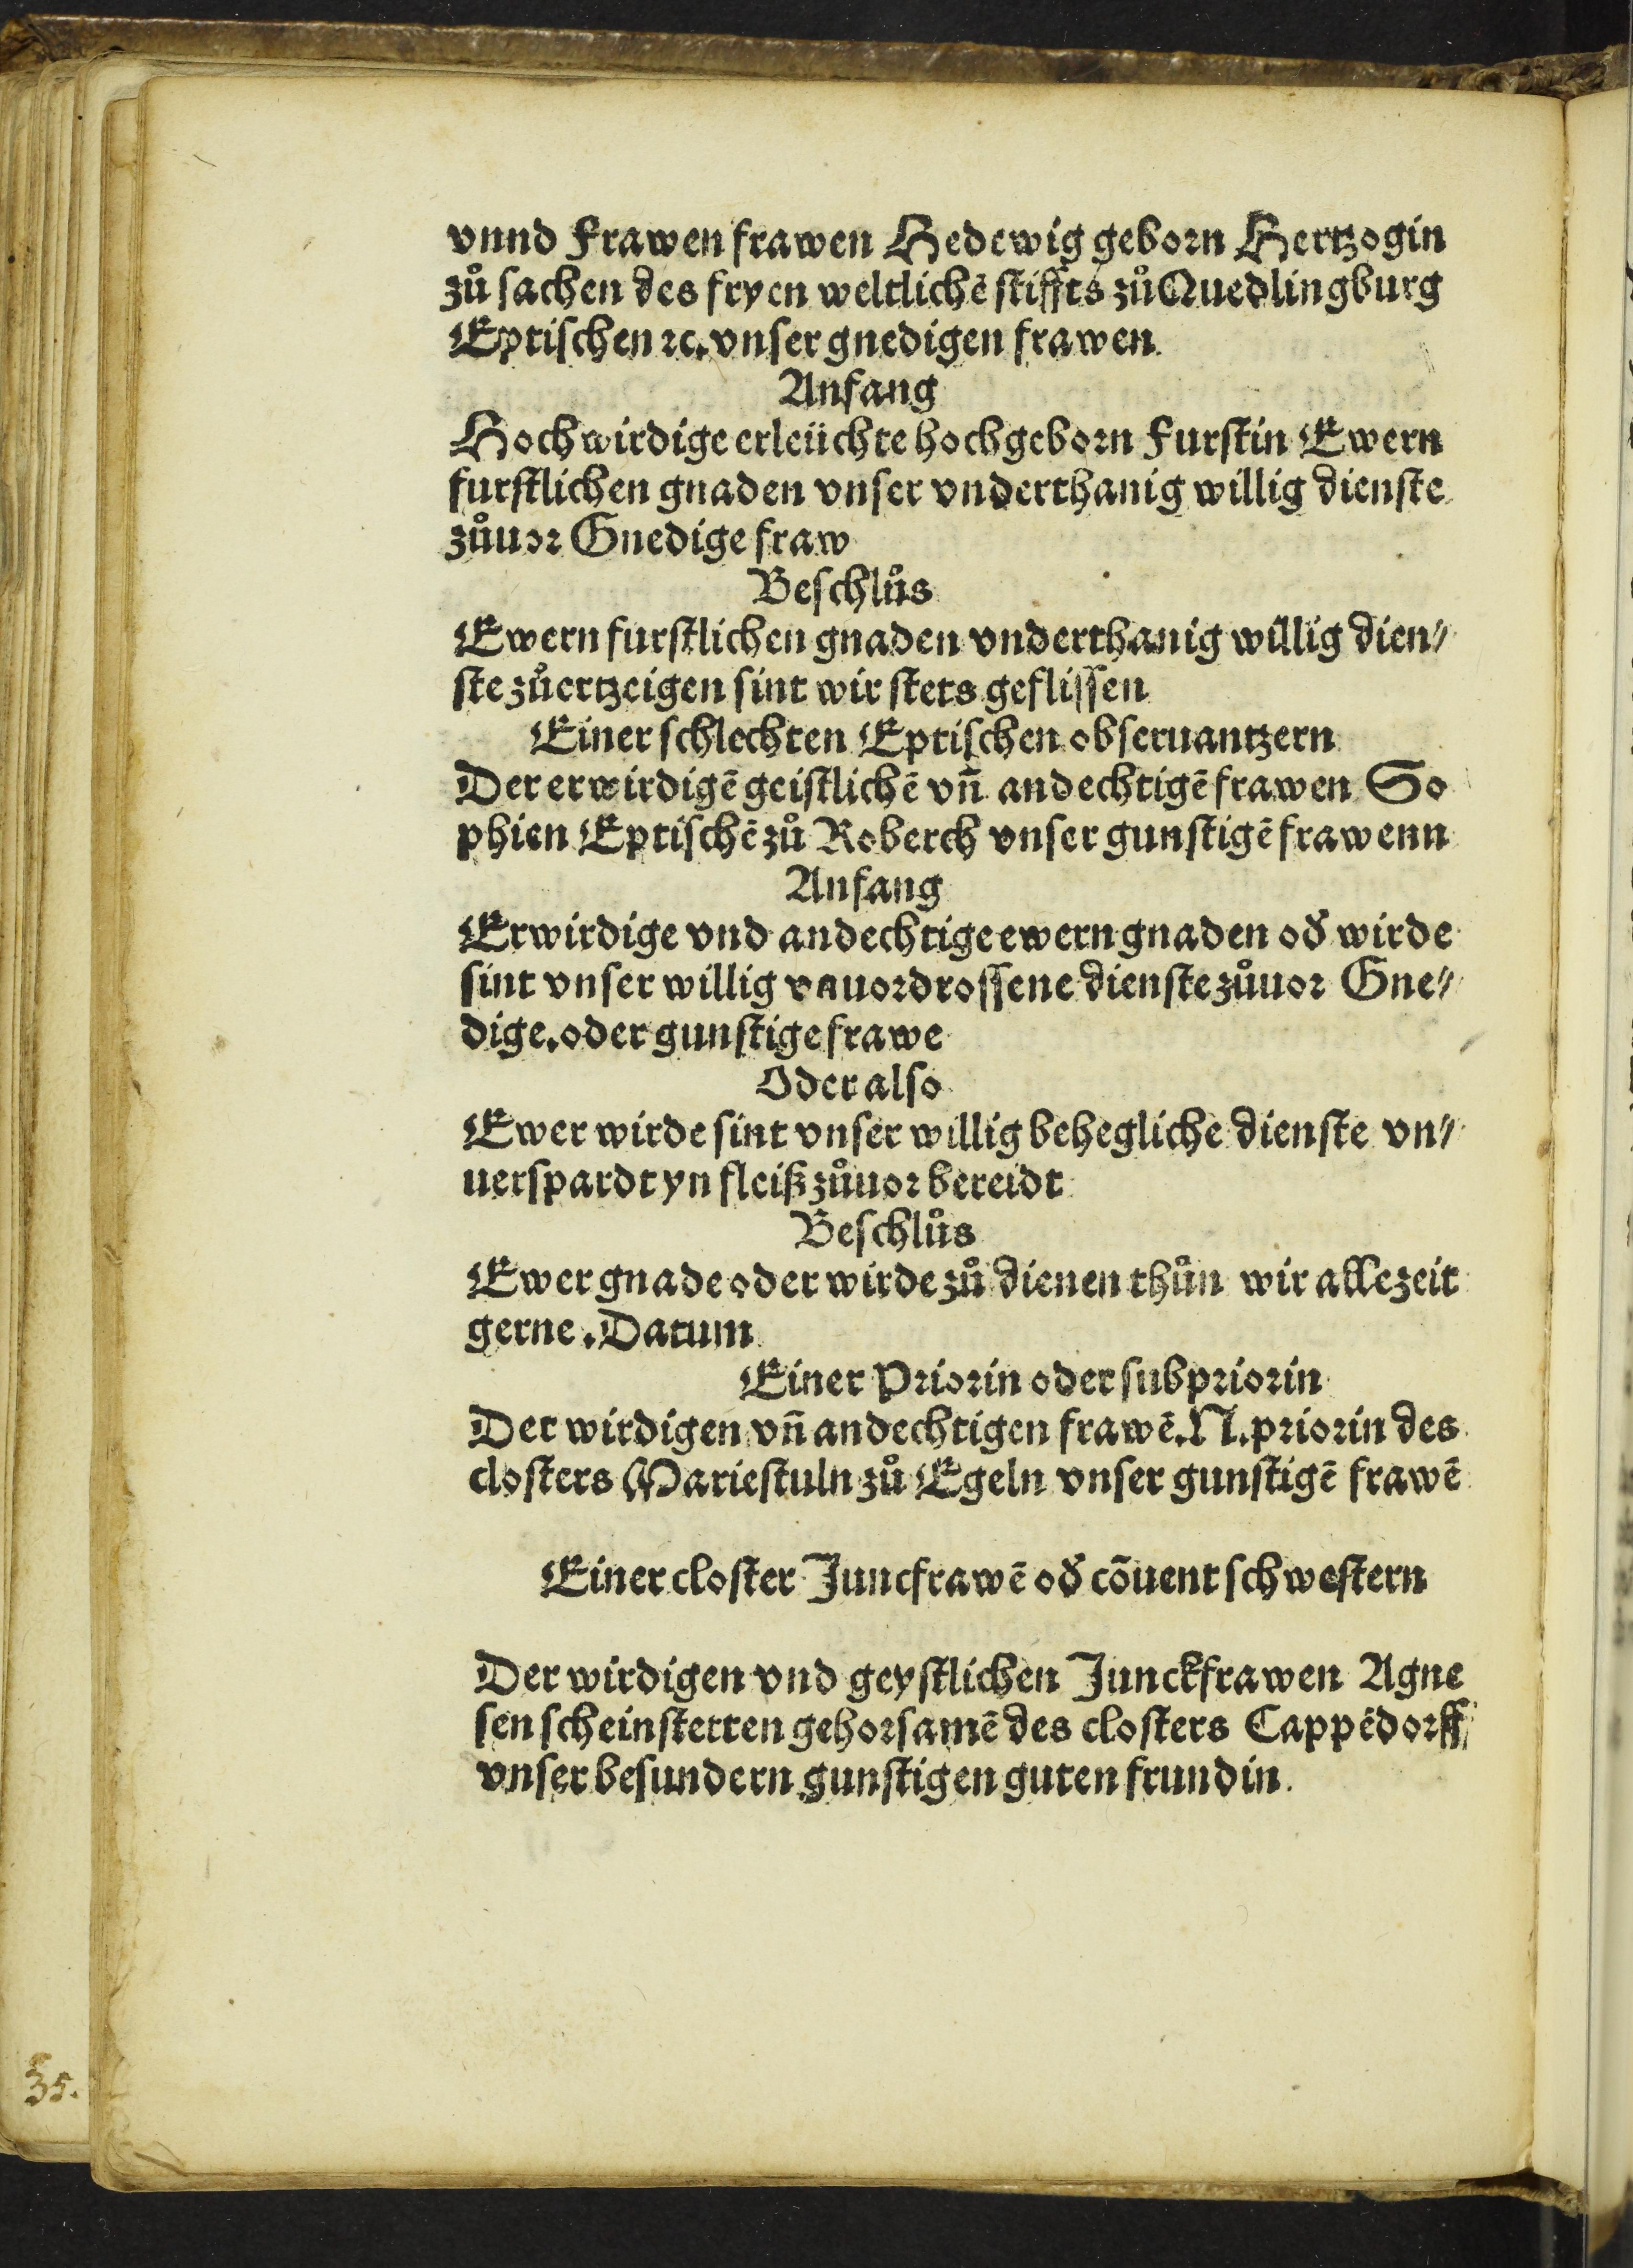 vnnd Frawen frawen Hedewig geborn Hertzogin
zů sachen des fryen weltlichē stiffts zů Quedlingburg
Eptischen ⁊c. vnser gnedigen frawen
Anfang
Hochwirdige erleüchte hochgeborn Furstin Ewern
furstlichen gnaden vnser vnderthanig willig dienste
zůuor Gnedige fraw
Beschlůs
Ewern furstlichen gnaden vnderthanig willig dien⸗
ste zůertzeigen sint wir stets geflissen
Einer schlechten Eptischen obseruantzern
Der erwirdigē geistlichē vn̄ andechtigē frawen So
phien Eptischē zů Roberch vnser gunstigē frawenn
Anfang
Erwirdige vnd andechtige ewern gnaden od̕ wirde
sint vnser willig vnuordrossene dienste zůuor Gne⸗
dige. oder gunstige frawe
Oder also
Ewer wirde sint vnser willig behegliche dienste vn⸗
uerspardt yn fleiß zůuor bereidt
Beschlůs
Ewer gnade oder wirde zů dienen thůn wir allezeit
gerne. Datum
Einer Priorin oder subpriorin
Der wirdigen vn̄ andechtigen frawē. N. priorin des
closters Mariestuln zů Egeln vnser gunstigē frawē
Einer closter Juncfrawē od̕ cōuent schwestern
Der wirdigen vnd geystlichen Junckfrawen Agne
sen scheinsterren gehorsamē des closters Cappēdorff
vnser besundern gunstigen guten frundin.
35.